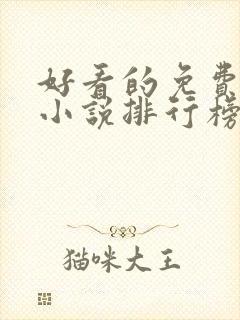 好看的免費
小說排行榜
猫咪大王